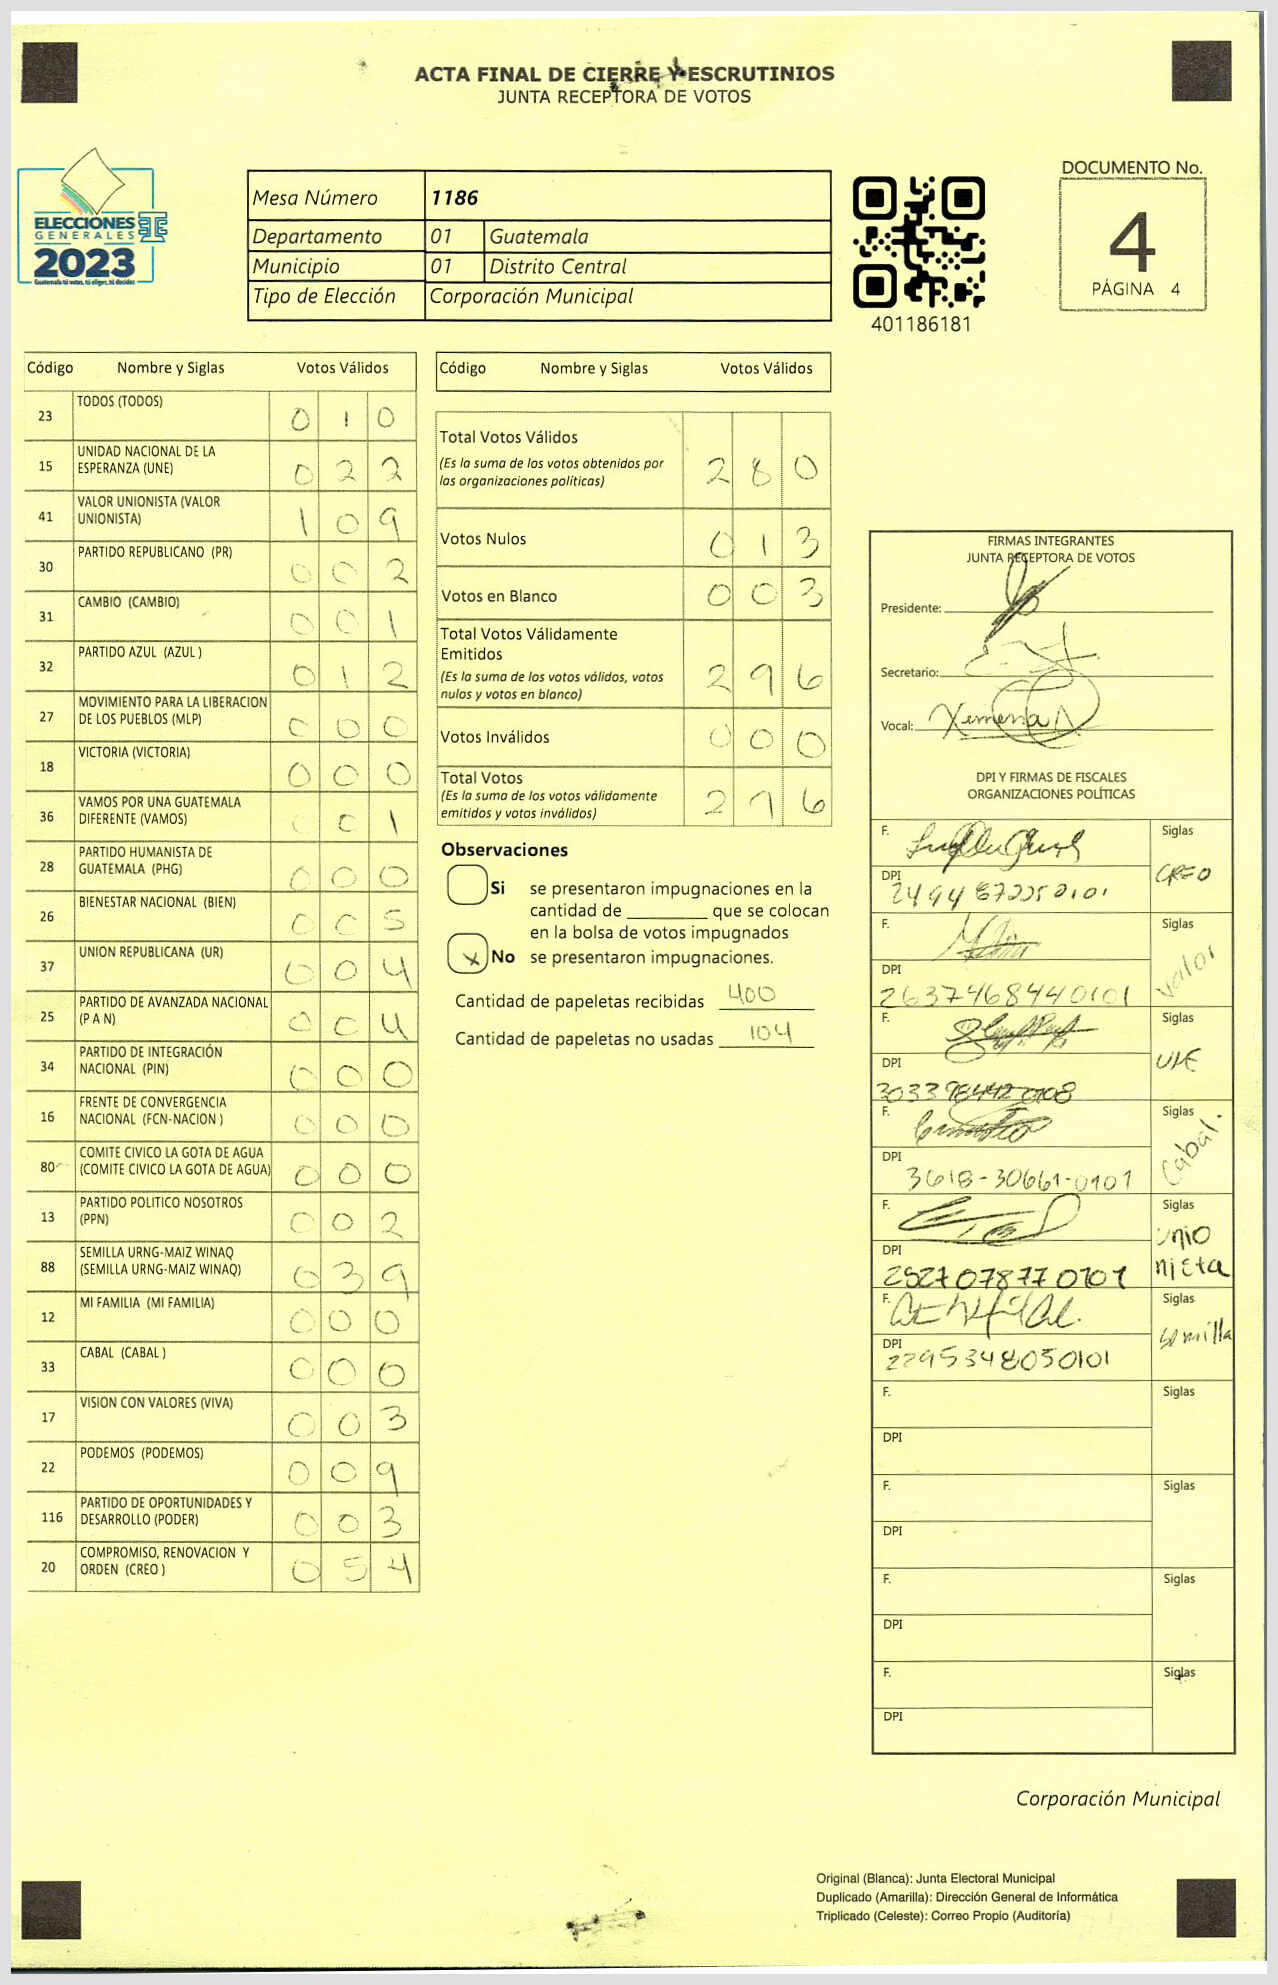 ACTA FINAL DE CIERRE Y ESCRUTINIOS
JUNTA RECEPTORA DE VOTOS
ELECCIONES
GENERALES
2023
Guatemala tú votas, tú eliges, tú decides
Mesa Número 1186
Departamento 01 Guatemala
Municipio 01 Distrito Central
Tipo de Elección Corporación Municipal
401186181
DOCUMENTO No.
4
PÁGINA 4
Código Nombre y Siglas Votos Válidos
23 TODOS (TODOS) 0 1 0
15 UNIDAD NACIONAL DE LA
ESPERANZA (UNE) 0 2 2
41 VALOR UNIONISTA (VALOR
UNIONISTA) 1 0 9
30 PARTIDO REPUBLICANO (PR) 0 0 2
31 CAMBIO (CAMBIO) 0 0 1
32 PARTIDO AZUL (AZUL ) 0 1 2
27 MOVIMIENTO PARA LA LIBERACION
DE LOS PUEBLOS (MLP) 0 0 0
18 VICTORIA (VICTORIA) 0 0 0
36 VAMOS POR UNA GUATEMALA
DIFERENTE (VAMOS) 0 0 1
28 PARTIDO HUMANISTA DE
GUATEMALA (PHG) 0 0 0
26 BIENESTAR NACIONAL (BIEN) 0 0 5
37 UNION REPUBLICANA (UR) 0 0 4
25 PARTIDO DE AVANZADA NACIONAL
(P A N) 0 0 4
34 PARTIDO DE INTEGRACIÓN
NACIONAL (PIN) 0 0 0
16 FRENTE DE CONVERGENCIA
NACIONAL (FCN-NACION ) 0 0 0
80 COMITE CIVICO LA GOTA DE AGUA
(COMITE CIVICO LA GOTA DE AGUA) 0 0 0
13 PARTIDO POLITICO NOSOTROS
(PPN) 0 0 2
88 SEMILLA URNG-MAIZ WINAQ
(SEMILLA URNG-MAIZ WINAQ) 0 3 9
12 MI FAMILIA (MI FAMILIA) 0 0 0
33 CABAL (CABAL ) 0 0 0
17 VISION CON VALORES (VIVA) 0 0 3
22 PODEMOS (PODEMOS) 0 0 9
116 PARTIDO DE OPORTUNIDADES Y
DESARROLLO (PODER) 0 0 3
20 COMPROMISO, RENOVACION Y
ORDEN (CREO ) 0 5 4
Código Nombre y Siglas Votos Válidos
Total Votos Válidos
(Es la suma de los votos obtenidos por
las organizaciones políticas) 2 8 0
Votos Nulos 0 1 3
Votos en Blanco 0 0 3
Total Votos Válidamente
Emitidos
(Es la suma de los votos válidos, votos
nulos y votos en blanco) 2 9 6
Votos Inválidos 0 0 0
Total Votos
(Es la suma de los votos válidamente
emitidos y votos inválidos) 2 9 6
Observaciones
Si se presentaron impugnaciones en la
cantidad de ________ que se colocan
en la bolsa de votos impugnados
x No se presentaron impugnaciones.
Cantidad de papeletas recibidas 400
Cantidad de papeletas no usadas 104
FIRMAS INTEGRANTES
JUNTA RECEPTORA DE VOTOS
Presidente:
Secretario:
Vocal: Ximena
DPI Y FIRMAS DE FISCALES
ORGANIZACIONES POLÍTICAS
F. Siglas
CREO
DPI
F. Siglas
Valor
DPI
2637468440101
F. Siglas
UNE
DPI
F. Siglas
Cabal.
DPI
3618-30661-0101
F. Siglas
Unio
nista
DPI
2527078770101
F. Siglas
semilla
DPI
2295348050101
F. Siglas
DPI
F. Siglas
DPI
F. Siglas
DPI
F. Siglas
DPI
Corporación Municipal
Original (Blanca): Junta Electoral Municipal
Duplicado (Amarilla): Dirección General de Informática
Triplicado (Celeste): Correo Propio (Auditoría)